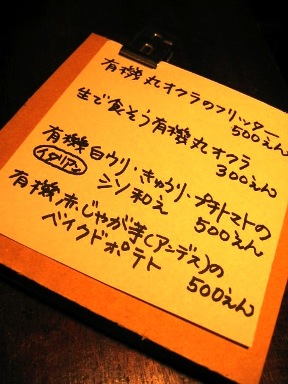 有機丸オクラのフリッター
500えん
生で食そう有機丸オクラ
300えん
有機白ウリ・きゅうり・プチトマトの
イタリアン シソ和え 500えん
有機赤じゃが芋(アンデス)の
ベイクドポテト 500えん